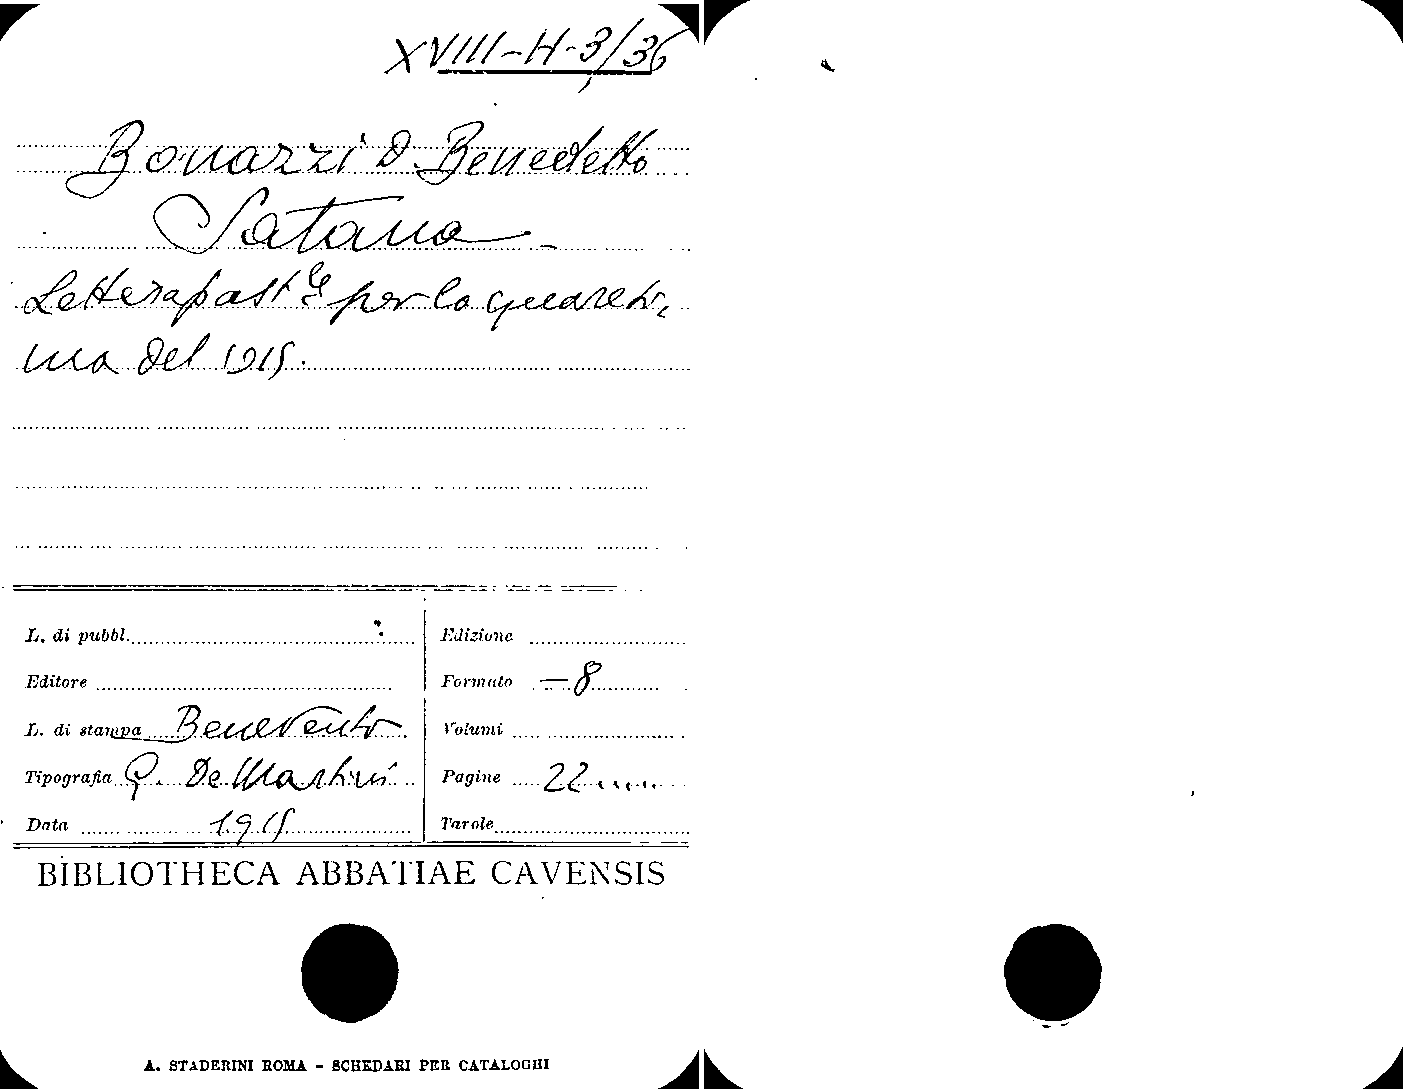 XVIII-H-3/36
Bonazzi D. Benedetto
Satana
Lettera past.le per la quaresi,
ma del 1915.
L. di pubbl.
Edizione
Editore
Formato -8
L. di stampa Benevento
Volumi
Tipografia G. De Martini
Pagine 22
Data 1915
Tavole
BIBLIOTHECA ABBATIAE CAVENSIS
A. STADERINI ROMA - SCHEDARI PER CATALOGHI